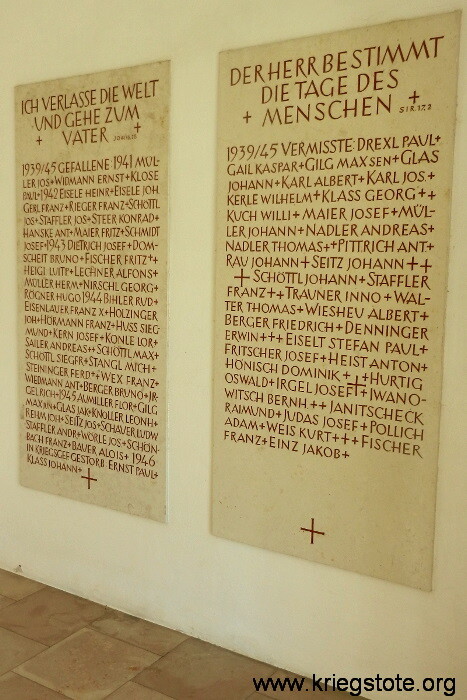 ICH VERLASSE DIE WELT
UND GEHE ZUM
+ VATER +
1939/45 GEFALLENE 1941 MÜL-
LER JOS + WIDMANN ERNST + KLOSE
PAUL + 1942 EISELE HEINR + EISELE JOH
GERL FRANZ + RIEGER FRANZ + SCHÖTTL
JOS + STAFFLER JOS + STEER KONRAD +
HANSKE ANT + MAIER FRITZ + SCHMIDT
JOSEF + 1943 DIETRICH JOSEF + DOM-
SCHEIT BRUNO + FISCHER FRITZ + +
HEIGL LUITP + LECHNER ALFONS +
MÜLLER HERM + NIRSCHL GEORG +
RÖGNER HUGO 1944 BIHLER RUD +
EISENLAUER FRANZ X + HOLZINGER
JOH + HÖRMANN FRANZ + HUSS SIEG-
MUND + KERN JOSEF + KONLE LOR +
SAILER ANDREAS + + SCHÖTTL MAX +
SCHÖTTL SIEGFR + STANGL MICH +
STEININGER FERD + + WEX FRANZ +
WIEDMANN ANT + BERGER BRUNO + JR-
GEL RICH + 1945 AUMILLER FLOR + GILG
MAX JUN + GLAS JAK + KNOLLER LEONH +
REHM JOH + SEITZ JOS + SCHAUER LUDW
STAFFLER ANDR + WÖRLE JOS + SCHÖN-
BACH FRANZ + BAUER ALOIS + 1946
IN KRIEGSGEF GESTORB. ERNST PAUL +
KLASS JOHANN + +
DER HERR BESTIMMT
DIE TAGE DES
+ MENSCHEN + SIR. 17,2
1939/45 VERMISSTE: DREXL PAUL +
GAIL KASPAR + GILG MAX SEN + GLAS
JOHANN + KARL ALBERT + KARL JOS. +
KERLE WILHELM + KLASS GEORG + +
KUCH WILLI + MAIER JOSEF + MÜL-
LER JOHANN + NADLER ANDREAS +
NADLER THOMAS + + PITTRICH ANT +
RAU JOHANN + SEITZ JOHANN + +
+ SCHÖTTL JOHANN + STAFFLER
FRANZ + + TRAUNER INNO + WAL-
TER THOMAS + WIESHEU ALBERT +
BERGER FRIEDRICH + DENNINGER
ERWIN + + EISELT STEFAN PAUL +
FRITSCHER JOSEF + HEIST ANTON +
HONISCH DOMINIK + + HURTIG
OSWALD + IRGEL JOSEF + + IWANO-
WITSCH BERNH. + + JANITSCHECK
RAIMUND + JUDAS JOSEF + POLLICH
ADAM + WEIS KURT + + + FISCHER
FRANZ + EINZ JAKOB +
+
www.kriegstote.org